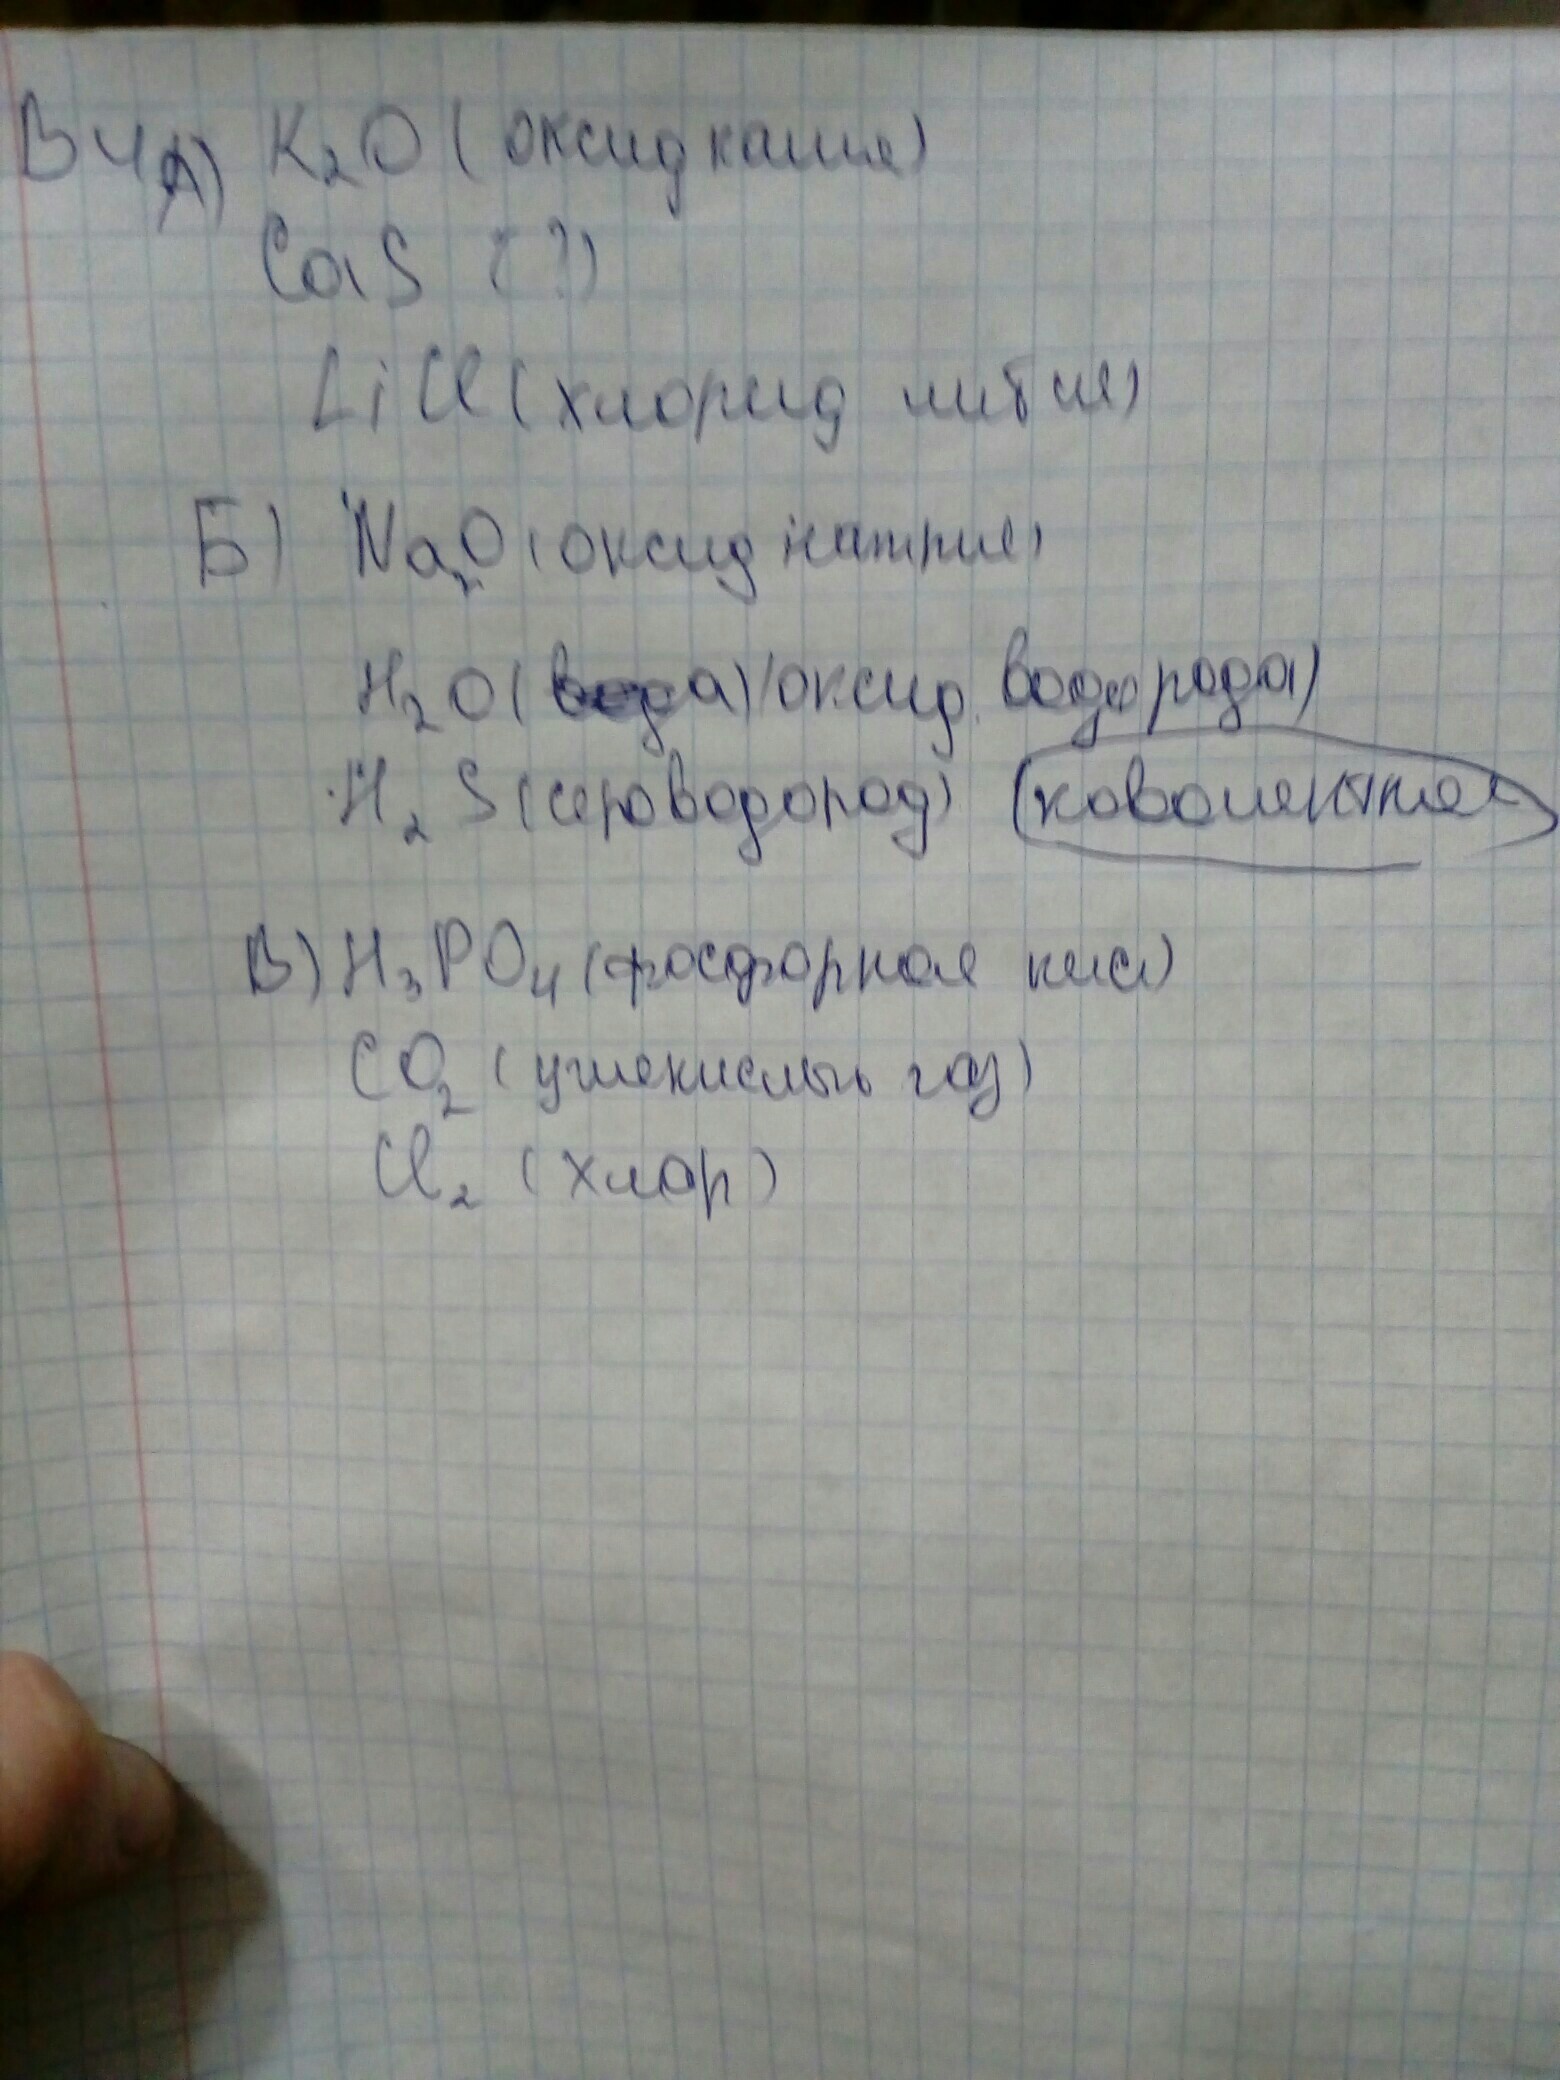 В4 А) K₂O (оксид калия)
CaS (?)
LiCl (хлорид лития)
Б) Na₂O (оксид натрия)
H₂O (вода) (оксид водорода)
H₂S (сероводород) (коволентная
В) H₃PO₄ (фосфорная кисл)
CO₂ (углекислый газ)
Cl₂ (хлор)